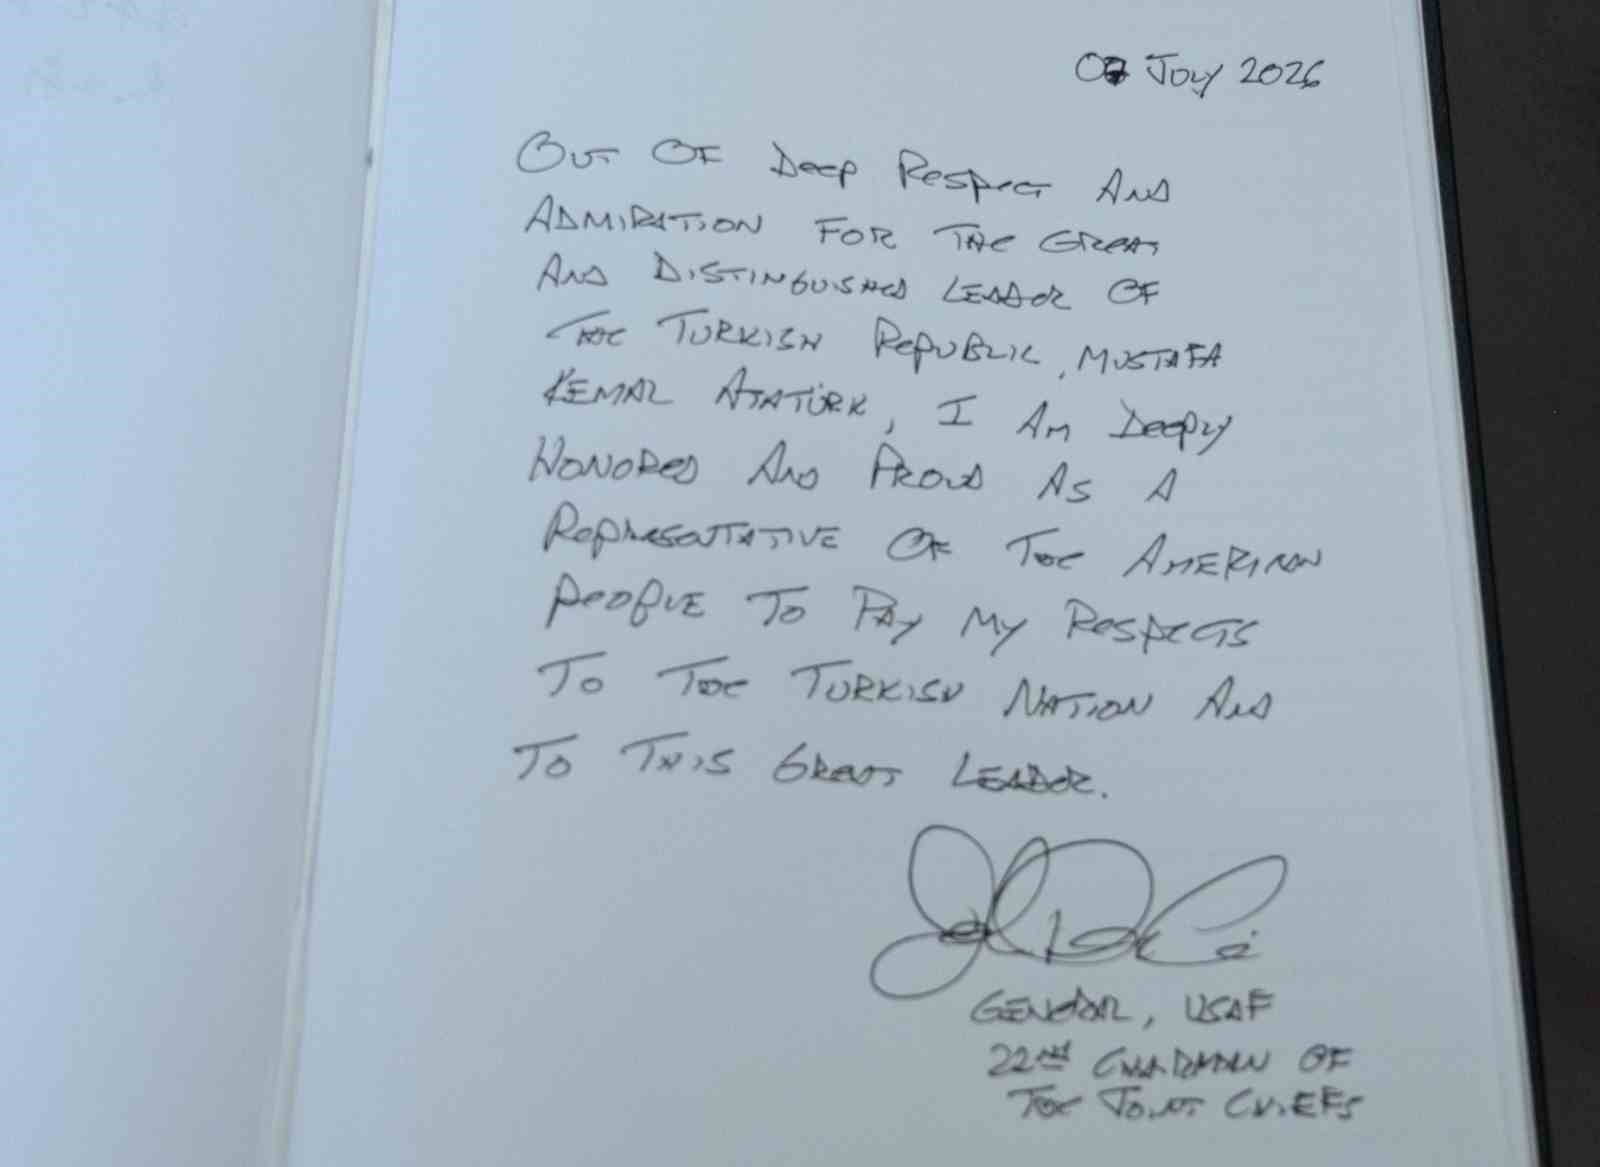 07 July 2026
Out Of Deep Respect And
Admiration For The Great
And Distinguished Leader Of
The Turkish Republic, Mustafa
Kemal Atatürk, I Am Deeply
Honored And Proud As A
Representative Of The American
People To Pay My Respects
To The Turkish Nation And
To This Great Leader.
General, USAF
22nd Chairman Of
The Joint Chiefs